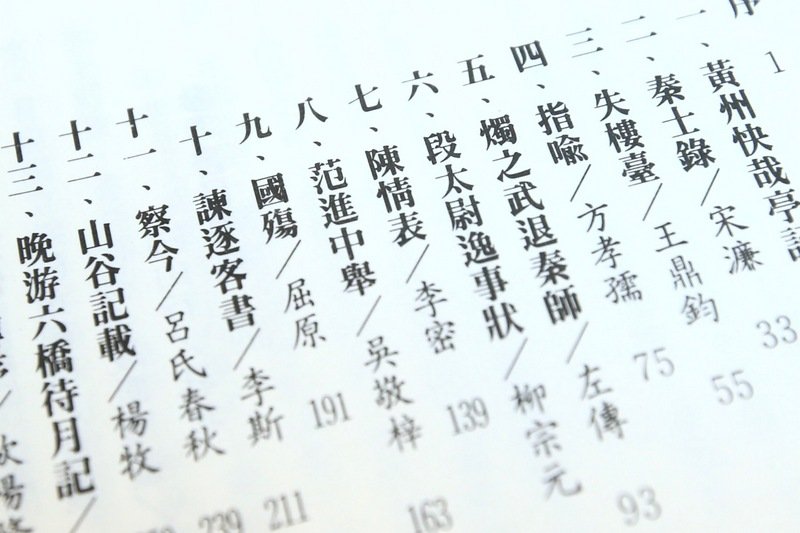 序 1
一、黃州快哉亭記
二、秦士錄／宋濂 33
三、失樓臺／王鼎鈞 55
四、指喻／方孝孺 75
五、燭之武退秦師／左傳 93
六、段太尉逸事狀／柳宗元
七、陳情表／李密 139
八、范進中舉／吳敬梓 163
九、國殤／屈原 191
十、諫逐客書／李斯 211
十一、察今／呂氏春秋 239
十二、山谷記載／楊牧
十三、晚游六橋待月記／